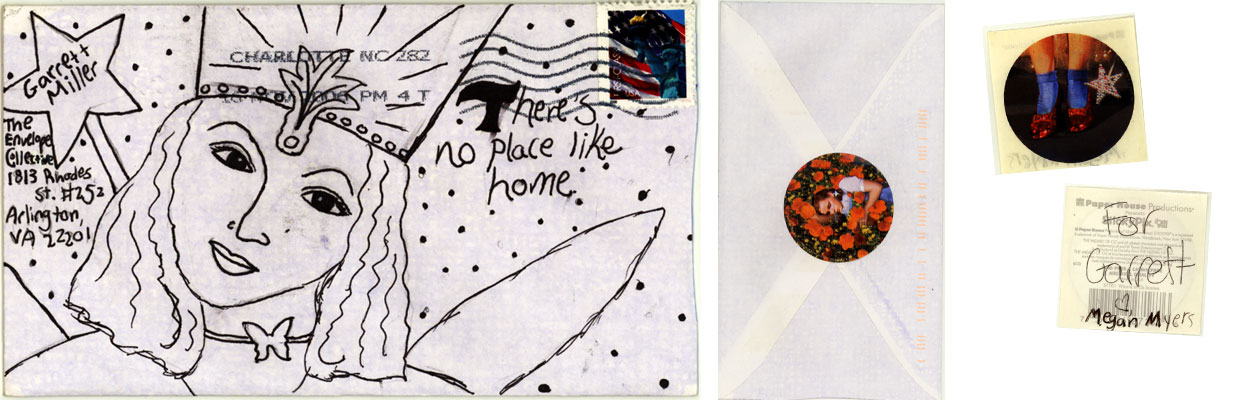 Garrett
Miller
The
Envelope
Collective
1813 Rhodes
St. #252
Arlington,
VA 22201
CHARLOTTE NC 282
PM 4 T
USA
There's
no place like
home.
Paper House Productions
For
Garrett
Megan Myers